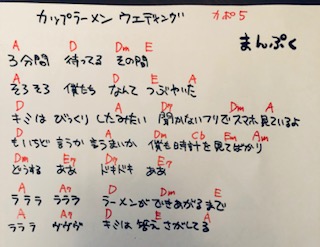 カップラーメン ウエディング カポ5
まんぷく
A D Dm E
3分間 待ってる その間
A D E A
そろそろ 僕たち なんて つぶやいた
D A D7 Dm A
キミは びっくり したみたい 聞かないフリで スマホ 見ているよ
Dm A Dm Cb Em Am
もいちど 言うか 言うまいか 僕も時計を見てばかり
Dm E7 D7 E7
どうする ああ ドキドキ ああ
A A7 D Dm E
ラララ ラララ ラーメンが できあがるまで
A A7 D E A
ラララ ウウウ キミは 答え さがしてる